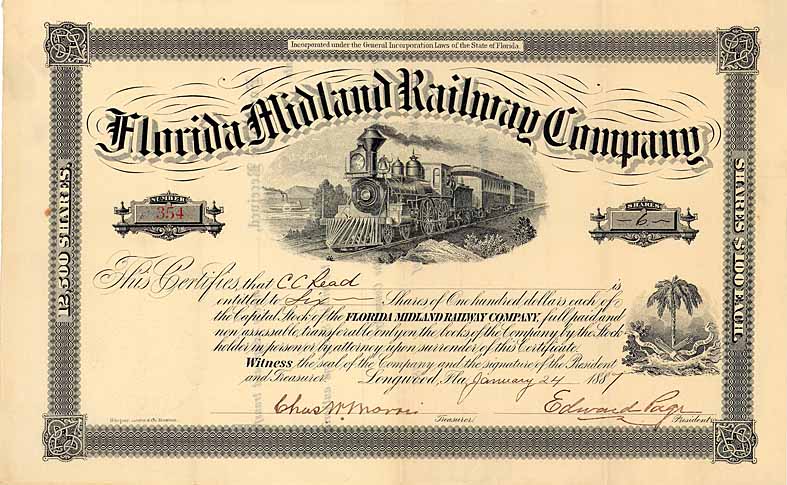 Incorporated under the General Incorporation Laws of the State of Florida.
Florida Midland Railway Company
NUMBER
354
SHARES
6
12,500 SHARES.
SHARES $100 EACH.
This Certifies, that C C Read is
entitled to Six Shares of One hundred dollars each of
the Capital Stock of the FLORIDA MIDLAND RAILWAY COMPANY, full paid and
non assessable, transferable only on the books of the Company by the Stock-
holder in person or by attorney upon surrender of this Certificate.
Witness, the seal of the Company and the signature of the President
and Treasurer. Longwood, Fla. January 24 1887
Chas W. Morris Treasurer Edward Page President